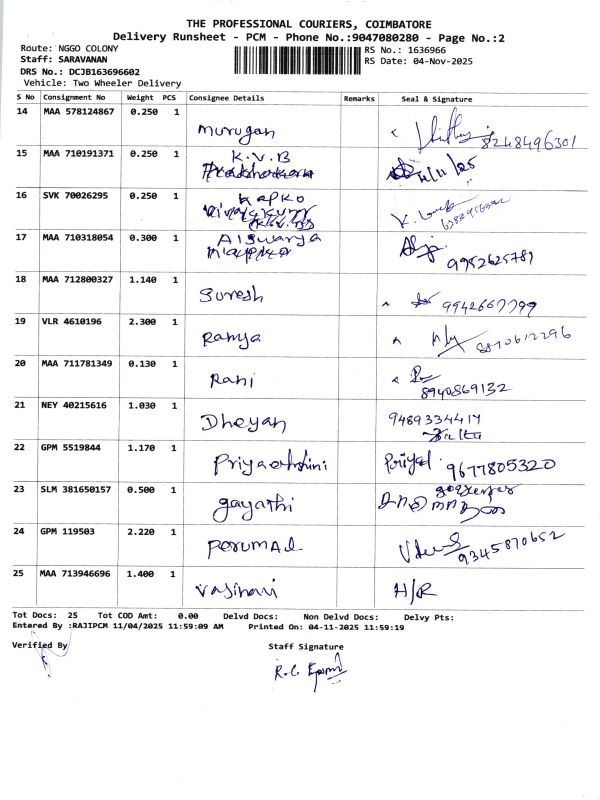 THE PROFESSIONAL COURIERS, COIMBATORE
Delivery Runsheet - PCM - Phone No.:9047080280 - Page No.:2
Route: NGGO COLONY
RS No.: 1636966
Staff: SARAVANAN
RS Date: 04-Nov-2025
DRS No.: DCJB163696602
Vehicle: Two Wheeler Delivery
S No Consignment No Weight PCS Consignee Details Remarks Seal & Signature
14 MAA 578124867 0.250 1 Murugan 8248496301
15 MAA 710191371 0.250 1 K.V.B
16 SVK 70026295 0.250 1 Kapko
17 MAA 710318054 0.300 1 Aiswarya 9952625781
18 MAA 712800327 1.140 1 Suresh 9942667799
19 VLR 4610196 2.300 1 Ramya
20 MAA 711781349 0.130 1 Rani 8940869132
21 NEY 40215616 1.030 1 Dheyan 9489334414
22 GPM 5519844 1.170 1 Priyadharshini Priya 9677805320
23 SLM 381650157 0.500 1 gayathi
24 GPM 119503 2.220 1 Perumal 9345870652
25 MAA 713946696 1.400 1 Vasihari H/R
Tot Docs: 25 Tot COD Amt: 0.00 Delvd Docs: Non Delvd Docs: Delvy Pts:
Entered By :RAJIPCM 11/04/2025 11:59:09 AM Printed On: 04-11-2025 11:59:19
Verified By Staff Signature